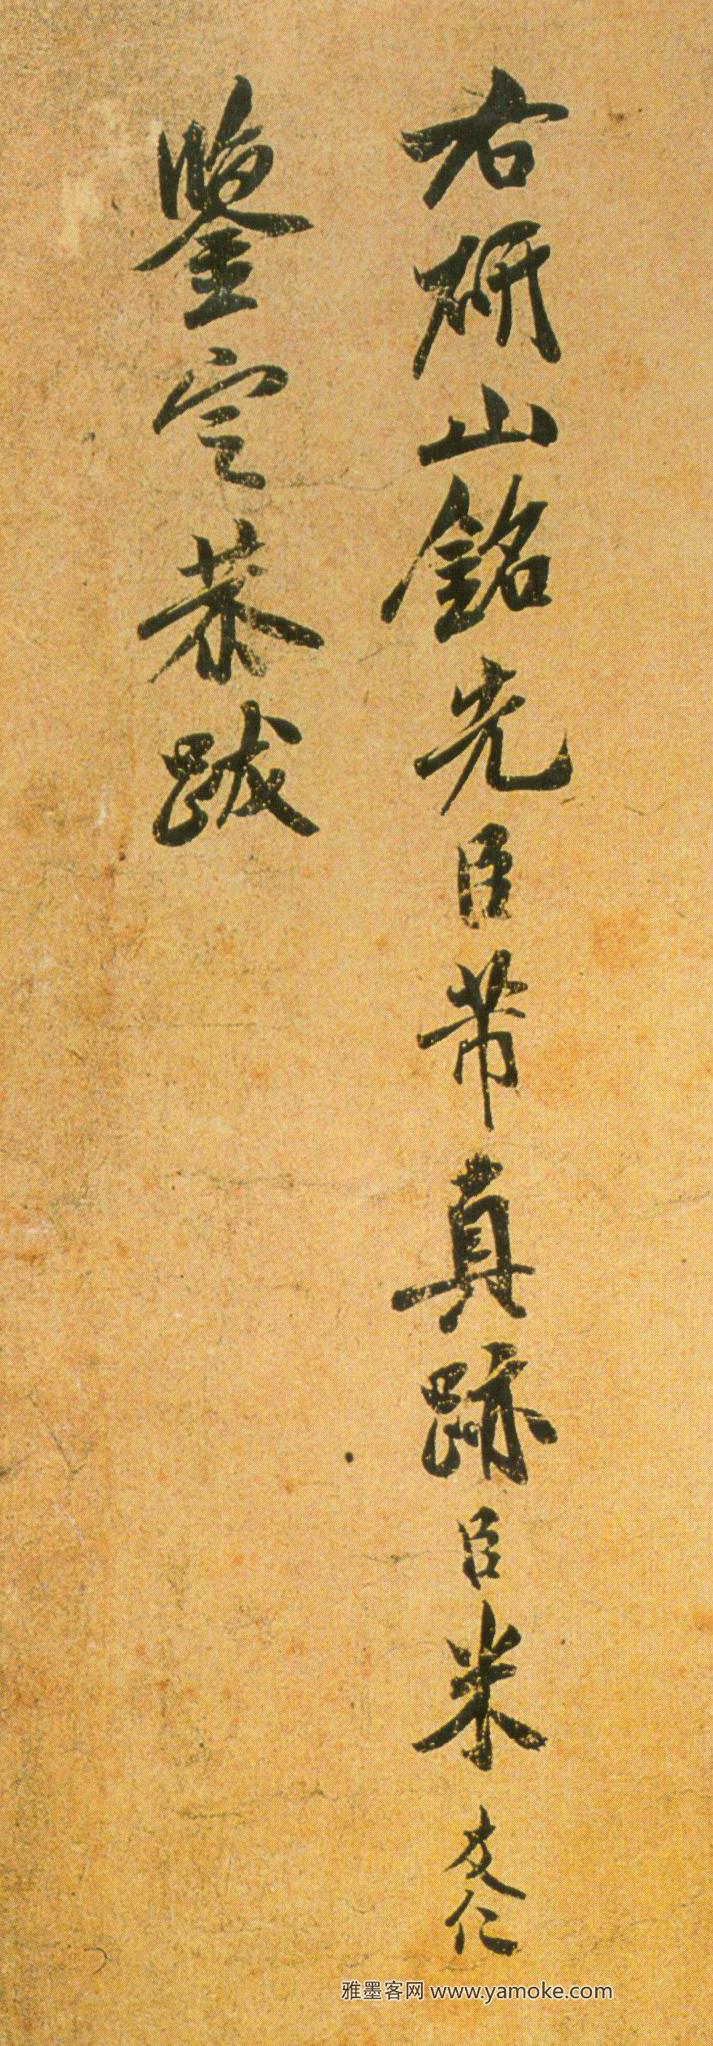 右研山銘先臣芾真跡臣米友仁
鑒定恭跋
雅墨客网 www.yamoke.com